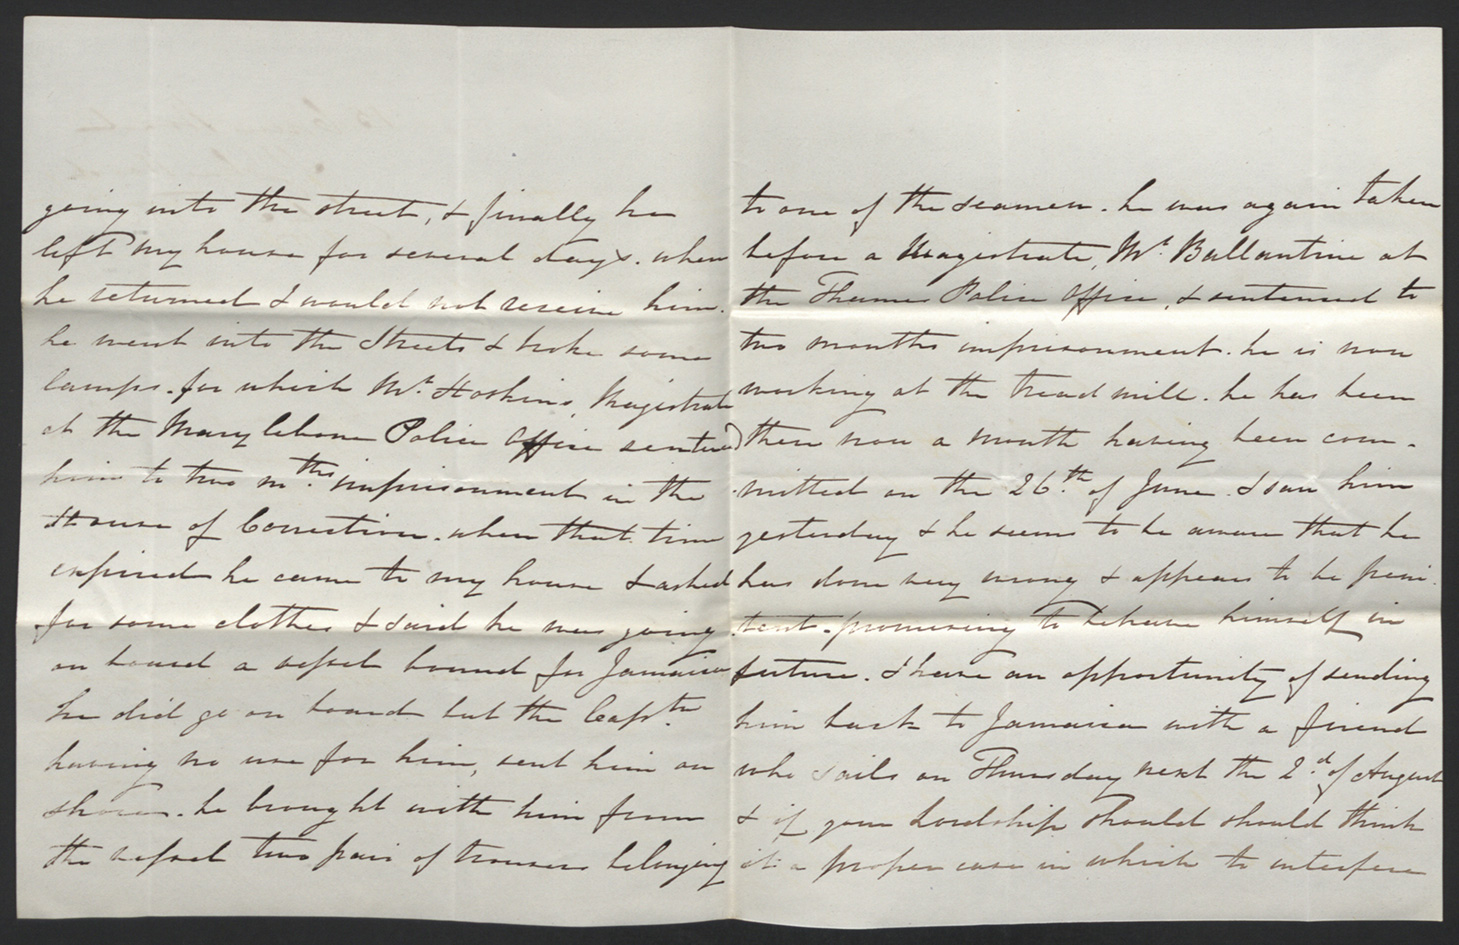 going into the street, & finally he
left my house for several days. when
he returned I would not receive him.
he went into the Streets & broke some
lamps. for which Mr. Hoskins, Magistrate
at the Marylebone Police Office sentenced
him to two mths. imprisonment in the
House of Correction. when that time
expired he came to my house & asked
for some clothes & said he was going
on board a vessel bound for Jamaica
he did go on board but the Captn.
having no use for him, sent him on
shore. he brought with him from
the vessel two pair of trousers belonging
to one of the seamen. he was again taken
before a Magistrate, Mr. Ballantine at
the Thames Police Office, & sentenced to
two months imprisonment. he is now
working at the tread mill. he has been
there now a month having been com-
mitted on the 26th. of June. I saw him
yesterday & he seems to be aware that he
has done very wrong & appears to be peni-
tent. promising to behave himself in
future. I have an opportunity of sending
him back to Jamaica with a friend
who sails on Thursday next the 2d. of August
& if your Lordship should should think
it a proper case in which to interfere